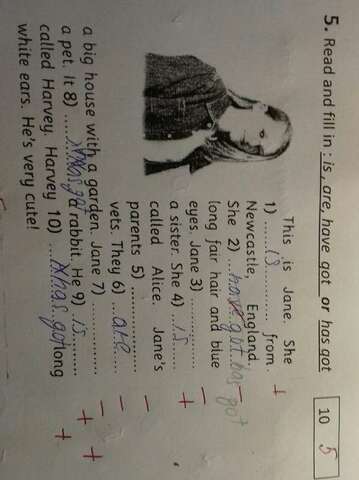 5. Read and fill in : is, are, have got or has got
10 5
This is Jane. She
1) ....is.... from +
Newcastle, England.
She 2) ...have got has got –
long fair hair and blue
eyes. Jane 3) ........... –
a sister. She 4) ..is.... +
called Alice. Jane's
parents 5) ........... –
vets. They 6) ..are... –
a big house with a garden. Jane 7) ........... –
a pet. It 8) .....is a rabbit. He 9) .is....... + +
called Harvey. Harvey 10) ....has got long +
white ears. He's very cute!